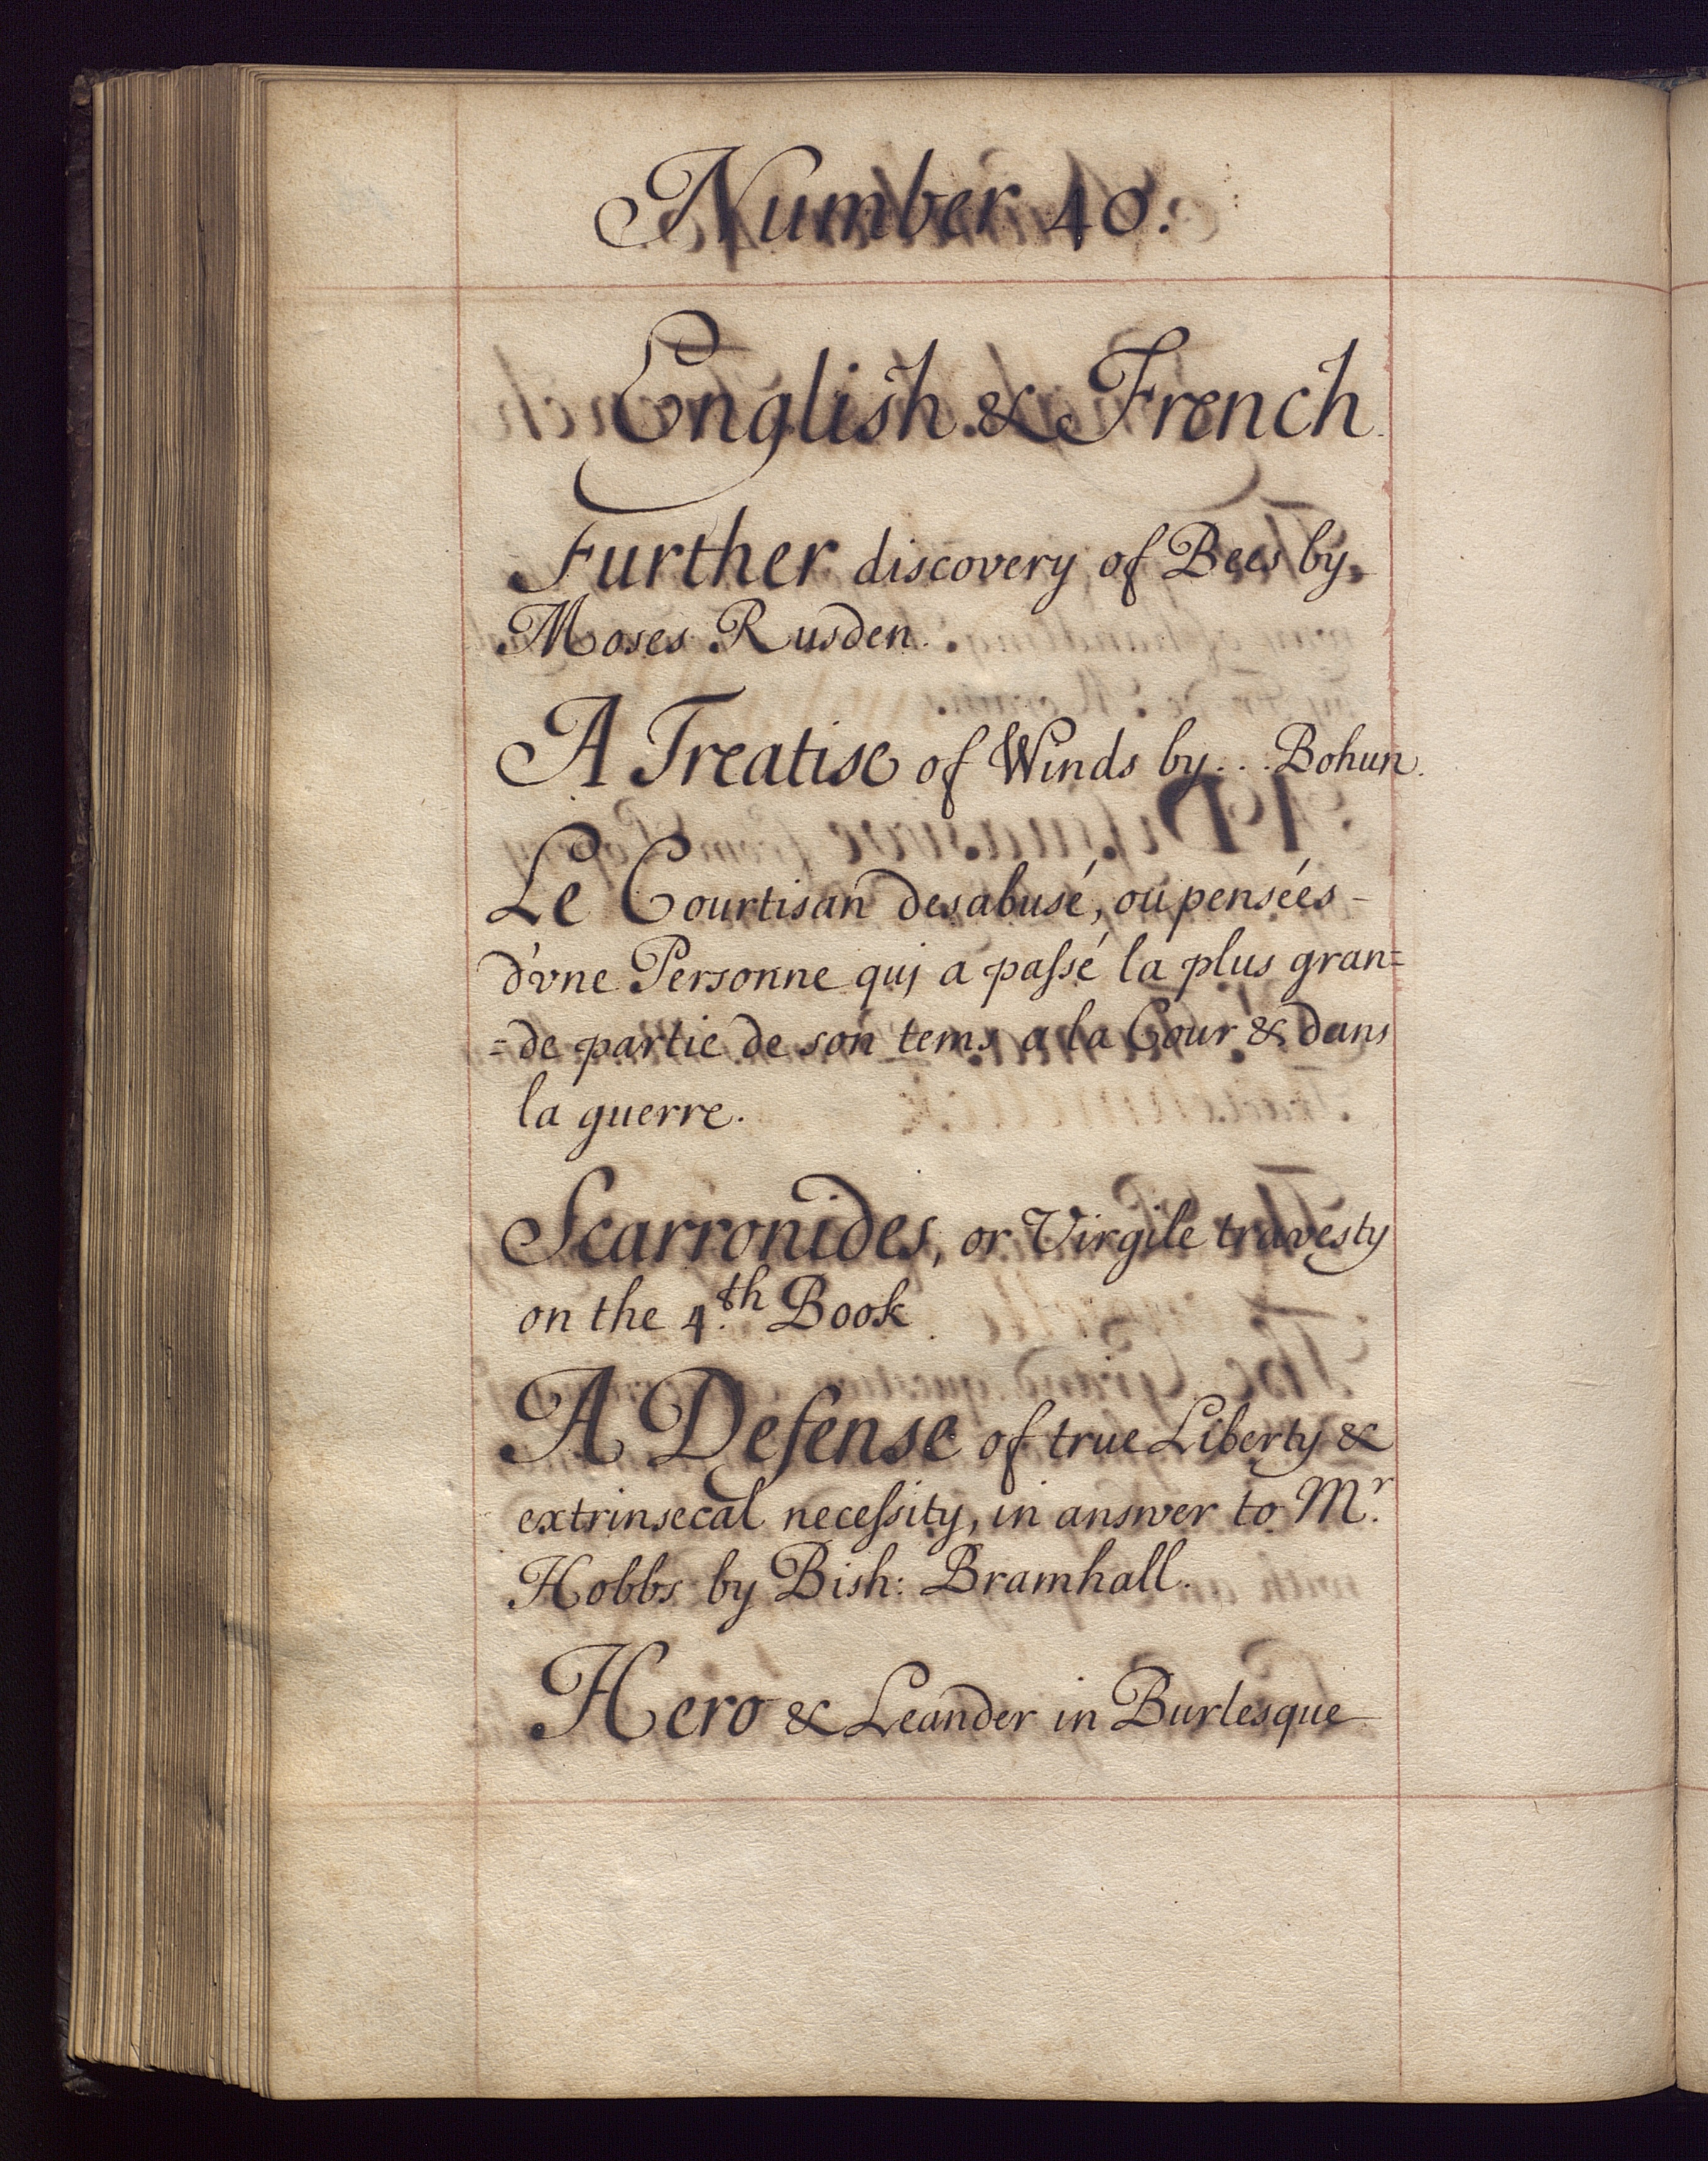 Number 40.
English & French
Further discovery of Bees by
Moses Rusden.
A Treatise of Winds by... Bohun.
Le Courtisan desabusé, ou pensées -
d'vne Personne quj a paſsé la plus gran=
=de partie de son tems a la Cour & dans
la guerre.
Scarronides, or Virgile travesty
on the 4.th Book
A Defense of true Liberty &
extrinsecal neceſsity, in answer to Mr.
Hobbs by Bish: Bramhall.
Hero & Leander in Burlesque